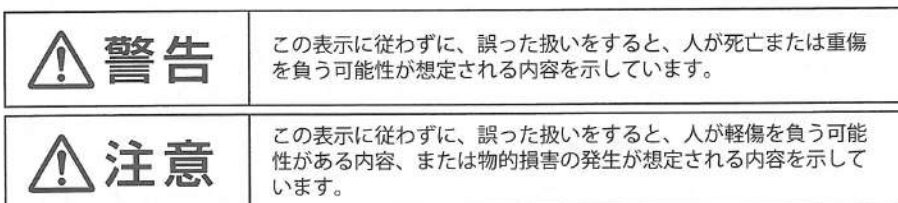 警告
この表示に従わずに、誤った扱いをすると、人が死亡または重傷
を負う可能性が想定される内容を示しています。
注意
この表示に従わずに、誤った扱いをすると、人が軽傷を負う可能
性がある内容、または物的損害の発生が想定される内容を示して
います。